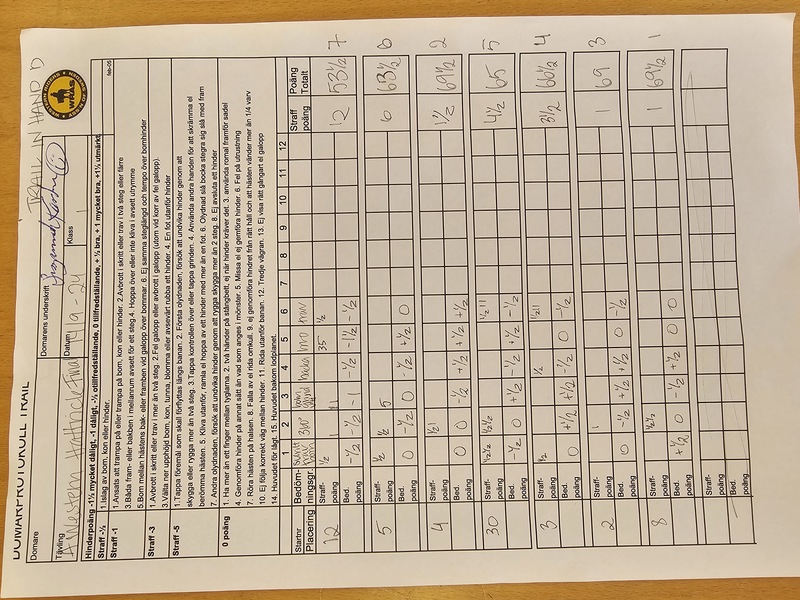 DOMARPROTOKOLL TRAIL
TRAIL IN HAND D
WRAS
feb-05
Domare
Domarens underskrift
Tävling
Western
Datum
14/9-24
Klass
Hinderpoäng -1½ mycket dåligt, -1 dåligt, -½ otillfredställande, 0 tillfredställande, + ½ bra, + 1 mycket bra, +1½ utmärkt
Straff -½
1.Islag av bom, kon eller hinder.
Straff -1
1.Ansats att trampa på eller trampa på bom, kon eller hinder. 2.Avbrott i skritt eller trav i två steg eller färre
3.Båda fram- eller bakben i mellanrum avsett för ett steg 4. Hoppa över eller inte kliva i avsett utrymme
5.Bom mellan hästens bak- eller framben vid galopp över bommar. 6. Ej samma steglängd och tempo över bomhinder
Straff -3
1.Avbrott i skritt eller trav i mer än två steg. 2. Fel galopp eller avbrott i galopp (utom vid korr av fel galopp).
3.Välta ner upphöjt bom, kon, tunna, blomma eller avsevärt rubba ett hinder. 4. En fot utanför hinder
Straff -5
1.Tappa föremål som skall förflyttas längs banan. 2. Första olydnaden, försök att undvika hinder genom att
skygga eller rygga mer än två steg. 3.Tappa kontrollen över eller tappa grinden. 4. Använda andra handen för att skrämma el
berömma hästen. 5. Kliva utanför, ramla el hoppa av ett hinder med mer än en fot. 6. Olydnad slå bocka stegra sig slå med fram
7. Andra olydnaden, försök att undvika hinder genom att rygga skygga mer än 2 steg. 8. Ej avsluta ett hinder
0 poäng
1. Ha mer än ett finger mellan tyglarna. 2. två händer på stångbett, ej när hinder kräver det. 3. använda romal framför sadel
4. Genomföra hinder på annat sätt än vad som anges i mönster. 5. Missa el ej gemföra hinder. 6. Fel på utrustning
7. Röra hästen på halsen. 8. Falla av el rida omkull. 9. ej genomföra hindret från rätt håll och att hästen vänder mer än 1/4 varv
10. Ej följa korrekt väg mellan hinder. 11. Rida utanför banan. 12. Tredje vägran. 13. Ej visa rätt gångart el galopp
14. Huvudet för lågt. 15. Huvudet bakom lodplanet.
Startnr
Placering
Bedöm-
ningsgr.
1 2 3 4 5 6 7 8 9 10 11 12
Straff
poäng
Poäng
Totalt
360° backa bro trav
12 Straff-poäng ½ 35 ½ 12 53½ 7
Bed. -½ -½ -1 -½ -1½ -½
5 Straff-poäng ½ ½ 5 6 63½ 6
Bed. 0 -½ 0 -½ +½ 0
4 Straff-poäng ½1 1½ 69½ 2
Bed. 0 0 -½ +½ +½ +½
30 Straff-poäng ½½ ½½ ½11 4½ 65 5
Bed. -½ 0 +½ -½ +½ -½
3 Straff-poäng ½ ½ ½11 3½ 66½ 4
Bed. 0 +½ +½ -½ 0 -½
2 Straff-poäng 1 1 69 3
Bed. 0 -½ +½ +½ 0 -½
8 Straff-poäng ½½ 1 69½ 1
Bed. +½ 0 -½ +½ 0 0
Straff-poäng
Bed.